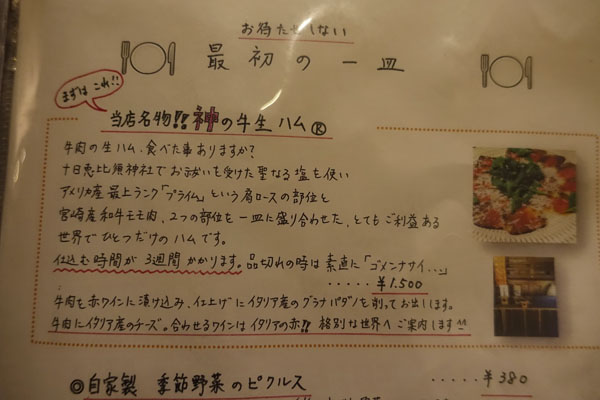 お待たせしない
最初の一皿
まずは これ!!
当店名物!!神の牛生ハム®
牛肉の生ハム、食べた事ありますか?
十日恵比須神社でお祓いを受けた聖なる塩を使い
アメリカ産最上ランク「プライム」という肩ロースの部位と
宮崎産和牛モモ肉、2つの部位を一皿に盛り合わせた、とてもご利益ある
世界でひとつだけのハムです。
仕込む時間が3週間かかります。品切れの時は素直に「ゴメンナサイ...」
・・・・・¥1.500
牛肉を赤ワインに漬け込み、仕上げにイタリア産のグラナパダノを削ってお出しします。
牛肉にイタリア産のチーズ。合わせるワインはイタリアの赤!! 格別な世界へご案内します^^
◎自家製 季節野菜のピクルス ・・・・・¥380